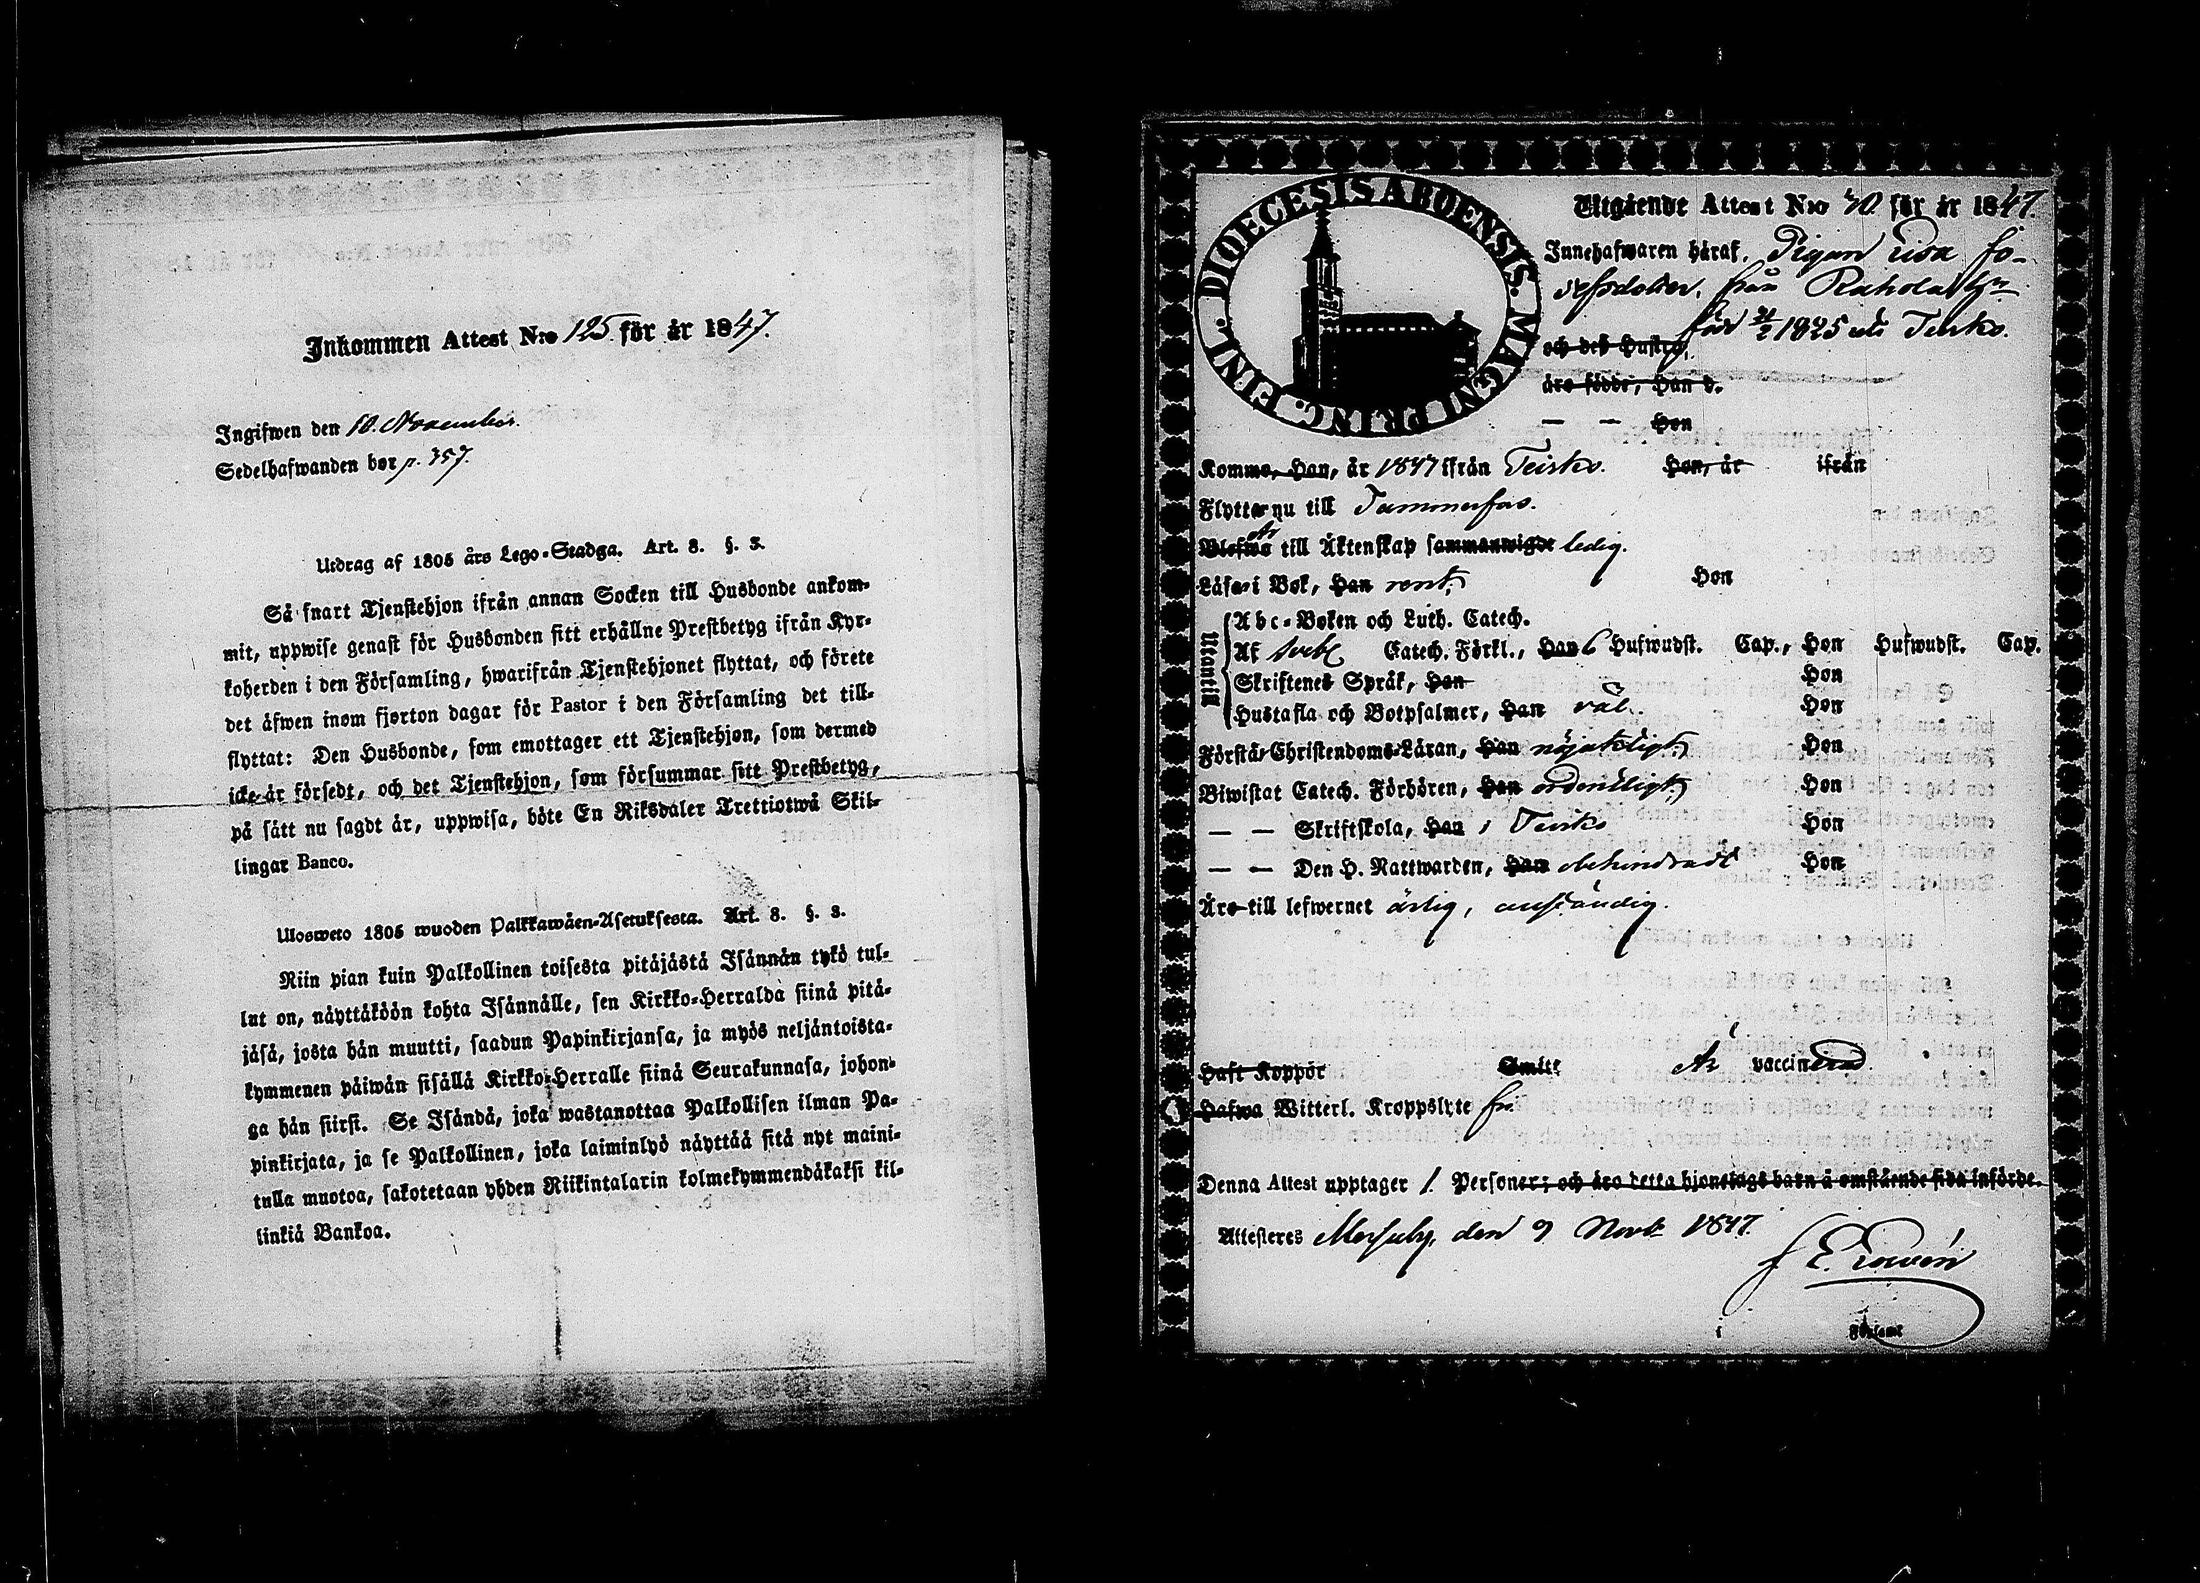 Inkommen Attest N:o 125 för år 1847.
Ingifwen den 10. November.
Sedelhafwanden bor p. 357.
Utdrag af 1805 års Lego-Stadga. Art. 8. §. 3.
Så snart Tjenstehjon ifrån annan Socken till Husbonde ankom-
mit, uppwise genast för Husbonden sitt erhållne Prestbetyg ifrån Kyr-
koherden i den Församling, hwarifrån Tjenstehjonet flyttat, och förete
det äfwen inom fjorton dagar för Pastor i den Församling det till-
flyttat: Den Husbonde, som emottager ett Tjenstehjon, som dermed
icke är försedt, och det Tjenstehjon, som försummar sitt Prestbetyg,
på sätt nu sagdt är, uppwisa, böte En Riksdaler Trettiotwå Skil-
lingar Banco.
Ulosweto 1805 wuoden Palkkawäen-Asetuksesta. Art. 8. §. 3.
Niin pian kuin Palkollinen toisesta pitäjästä Isännän tykö tul-
lut on, näyttäköön kohta Isännälle, sen Kirkko-Herralda siinä pitä-
jäsä, josta hän muutti, saadun Papinkirjansa, ja myös neljäntoista-
kymmenen päiwän sisällä Kirkko-Herralle siinä Seurakunnasa, johon-
ga hän siirsi. Se Isändä, joka wastanottaa Palkollisen ilman Pa-
pinkirjata, ja se Palkollinen, joka laiminlyö näyttää sitä nyt maini-
tulla muotoa, sakotetaan yhden Riikintalarin kolmekymmendäkaksi kil-
linkiä Bankoa.
DIOECESIS ABOENSIS. MAGNI PRINC. FINL.
Utgående Attest N:o 70. för år 1847.
Innehafwaren häraf, Pigan Lisa Jo-
sefsdotter, från Rahola
född 21/2 1825 uti Teisko.
och des Hustru,
äro födde, Han d.
— — Hon
Komme, Han, år 1847 ifrån Teisko. Hon, år ifrån
Flytter nu till Tammerfors.
Blefwo Är till Äktenskap sammanwigde ledig.
Läser i Bok, Han rent, Hon
Utantill
Abc-Boken och Luth. Catech.
Af Sveb. Catech. Förkl., Han 6 Hufwudst. Cap., Hon Hufwudst. Cap.
Skriftenes Språk, Han Hon
Hustafla och Botpsalmer, Han väl. Hon
Förstå Christendoms-Läran, Han nöjaktligt, Hon
Biwistat Catech. Förhören, Han ordentligt, Hon
— — Skriftskola, Han i Teisko Hon
— — Den H. Nattwarden, Han obehindradt Hon
Äro till lefwernet ärlig, anständig.
Haft Koppor Smitt Är vaccinerad.
Hafwa Witterl. Kroppslyte fri.
Denna Attest upptager 1. Personer; och äro detta hjonelags barn å omstående sida införde.
Attesteres Messuby, den 9 Novb 1847.
Församl